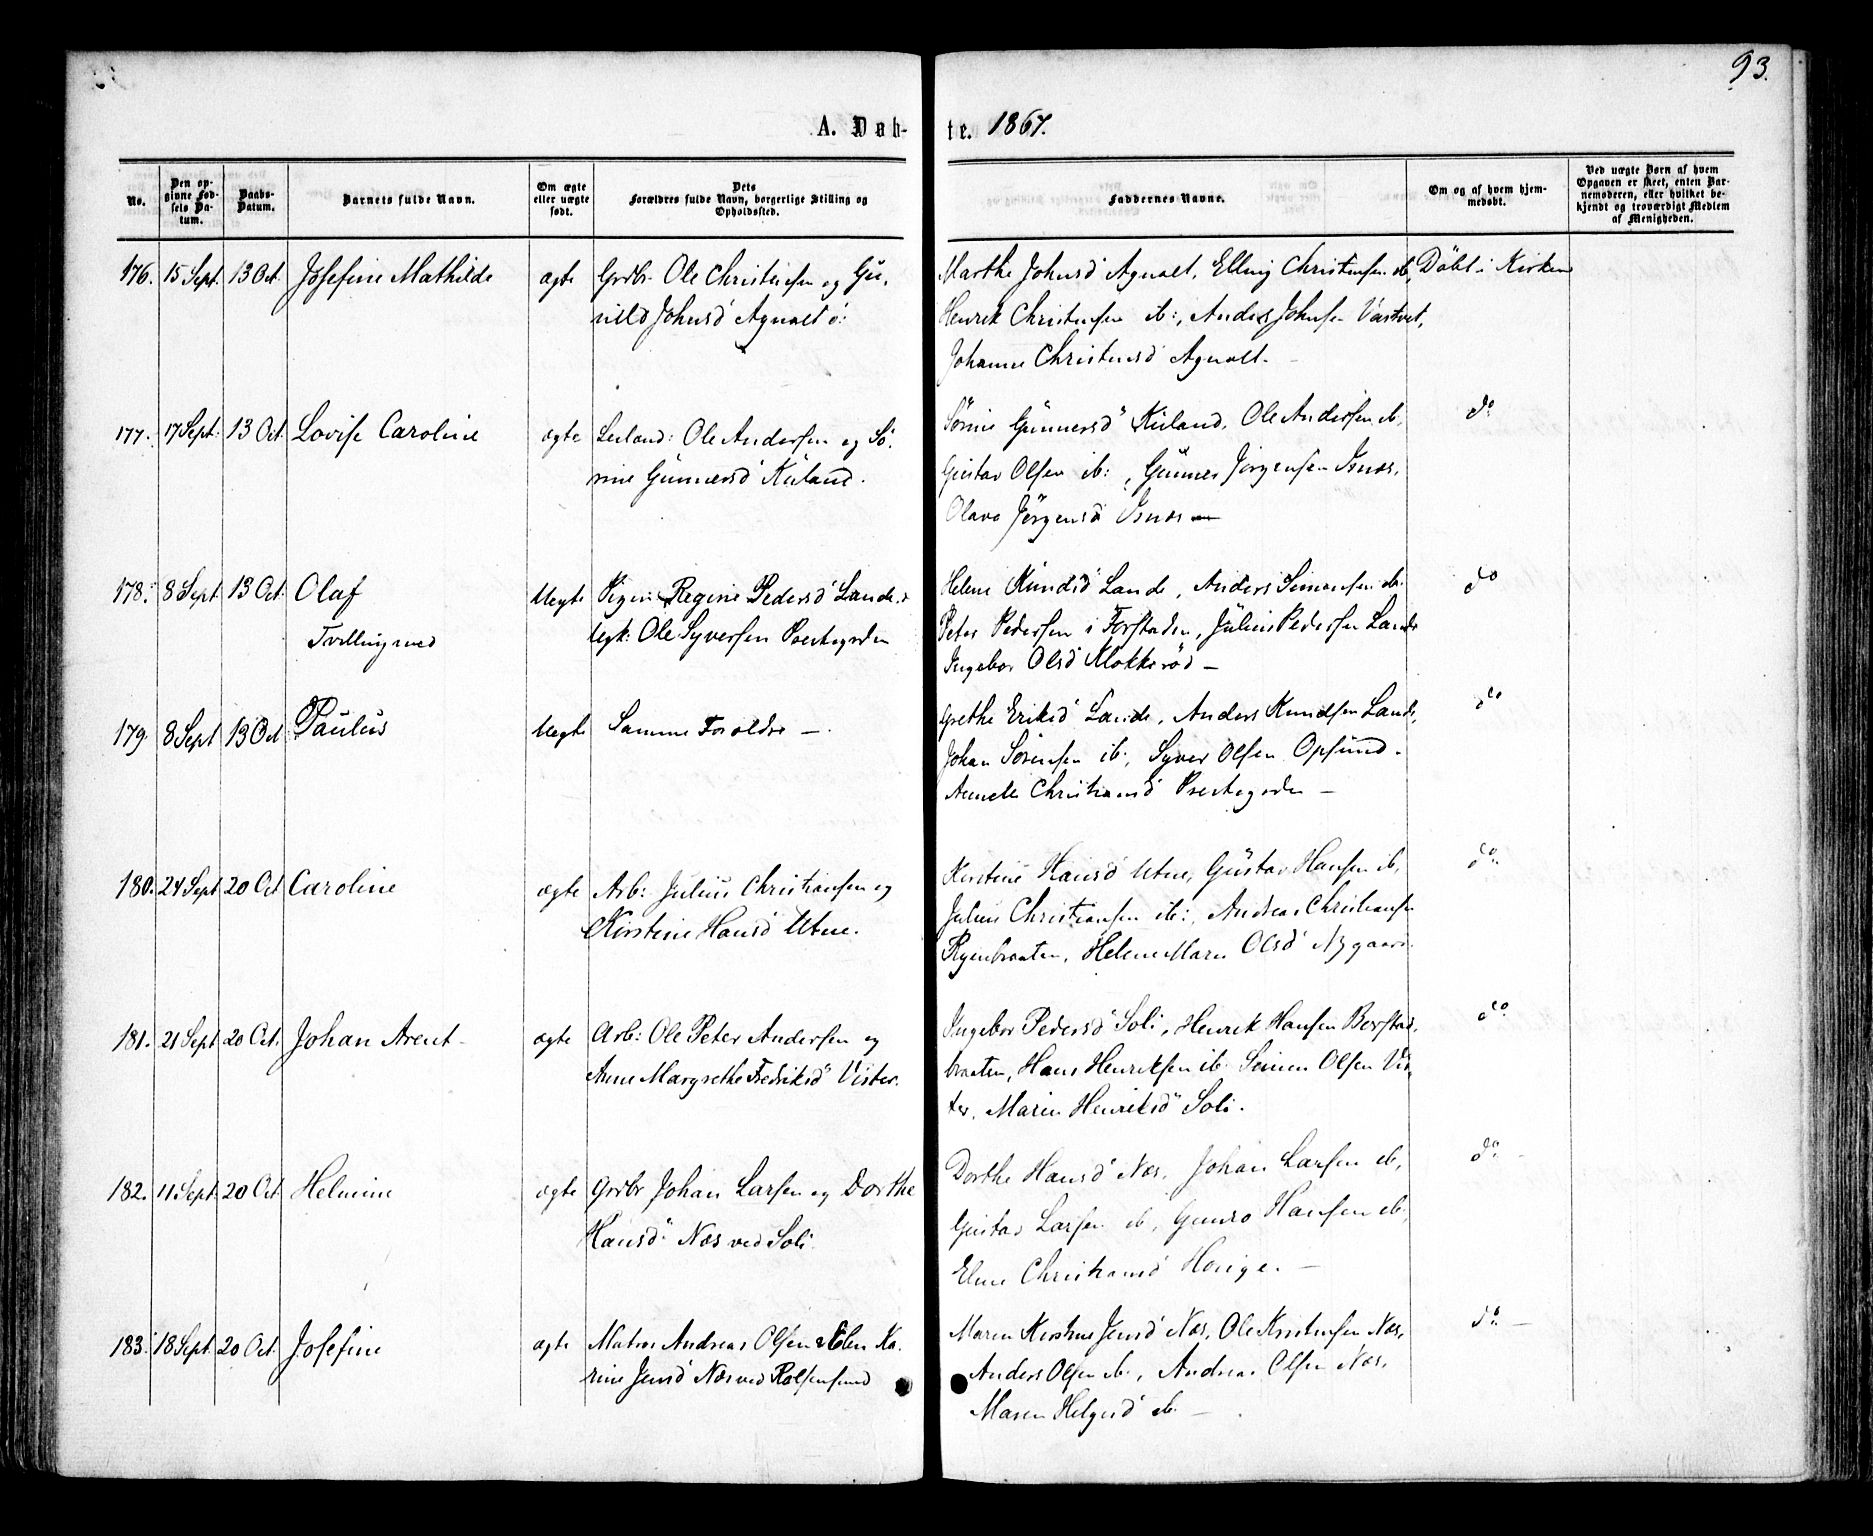 93.
A. Døb-te. 1867.
No.
Den op-
givne Fød-
sels Da-
tum.
Daabs-
Datum.
Barnets fulde Navn.
Om ægte
eller uægte
født.
Dets
Forældres fulde Navn, borgerlige Stilling og
Opholdssted.
Faddernes Navne.
Om og af hvem hjem-
medøbt.
Ved uægte Børn af hvem
Opgaven er skeet, enten Bar-
nemoderen, eller hvilket be-
kjendt og troværdigt Medlem
af Menigheden.
176. 15 Sept. 13 Oct. Josefine Mathilde ægte Grdbr. Ole Christensen og Gu-
nild Johnsd Agnalt ö:
Marthe Johnsd Agnalt, Elling Christensen ib, Döbt i Kirken
Henrik Christensen ib:, Anders Johnsen Vastvet,
Johanne Christensd Agnalt.
177. 17 Sept. 13 Oct. Lovise Caroline ægte Leiland: Ole Andersen og Sö-
rine Gunnersd Kiiland.
Sörine Gunnersd Kiiland, Ole Andersen ib,
Gustav Olsen ib:, Gunner Jörgensen Isnæs,
Olava Jörgensd Isnæs —
do
178. 8 Sept 13 Oct. Olaf Uegte Pigen Regine Pedersd Lande,
Tvilling med
Ugk: Ole Syversen Prestegarden
Helene Knudsd Lande, Anders Simensen ib.
Peter Pedersen i Forstaden, Julius Pedersen Lande
Ingebor Olsd Klokkeröd —
do
179. 8 Sept 13 Oct Paulus Uegte Samme Foroldre —
Grethe Eriksd Lande, Anders Knudsen Lande,
Johan Sörensen ib:, Syver Olsen Opsund.
Christiansd Prestegarden —
do
180. 24 Sept 20 Oct Caroline ægte Arb: Julius Christiansen og
Kirstine Hansd Utne.
Kirstine Hansd Utne, Gustav Hansen ib,
Julius Christiansen ib:, Andreas Christiansen
Ryenbraaten, Helene Maria Olsd Nygaard.
do
181. 21 Sept 20 Oct. Johan Arent ægte Arb: Ole Peter Andersen og
Anne Margrethe Fredriksd Vister.
Ingebor Pedersd Soli, Henrik Hansen Berstad-
braaten, Hans Henriksen ib. Simen Olsen Vis-
ter, Maren Henriksd Soli.
do
182. 11. Sept. 20 Oct Helmine ægte Grdbr Johan Larsen og Dorthe
Hansd Næs ved Soli.
Dorthe Hansd Næs, Johan Larsen ib,
Gustav Larsen ib, Gunro Hansen ib,
Eline Christiansd Hauge. —
do
183. 18 Sept. 20 Oct. Josefine ægte Matros Andreas Olsen & Elen Ka-
rine Jensd Næs ved Rolfsensund
Maren Kirstine Jensd Næs, Ole Kristensen Næs,
Anders Olsen ib:, Andreas Olsen Næs,
Maren Helgesd ib. —
do